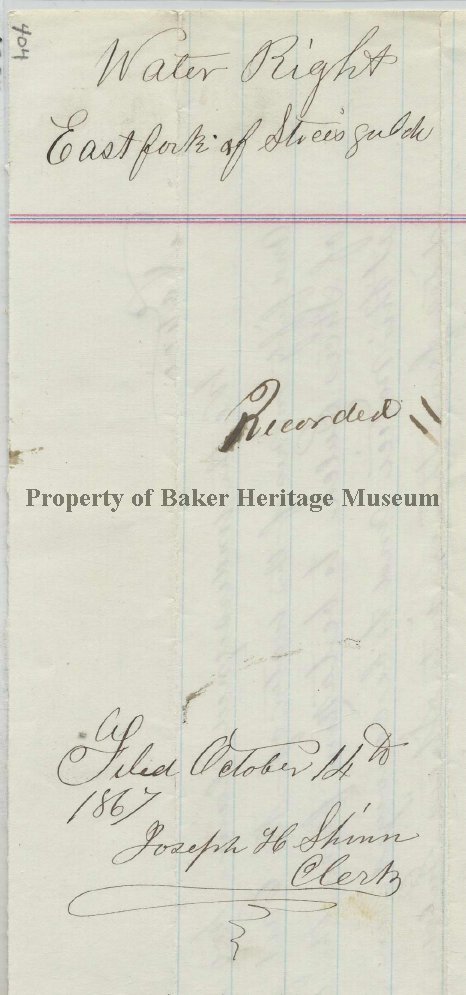 404
Water Right
East fork of Stices gulch
Recorded
Property of Baker Heritage Museum
Filed October 14th
1867
Joseph H Shinn
Clerk